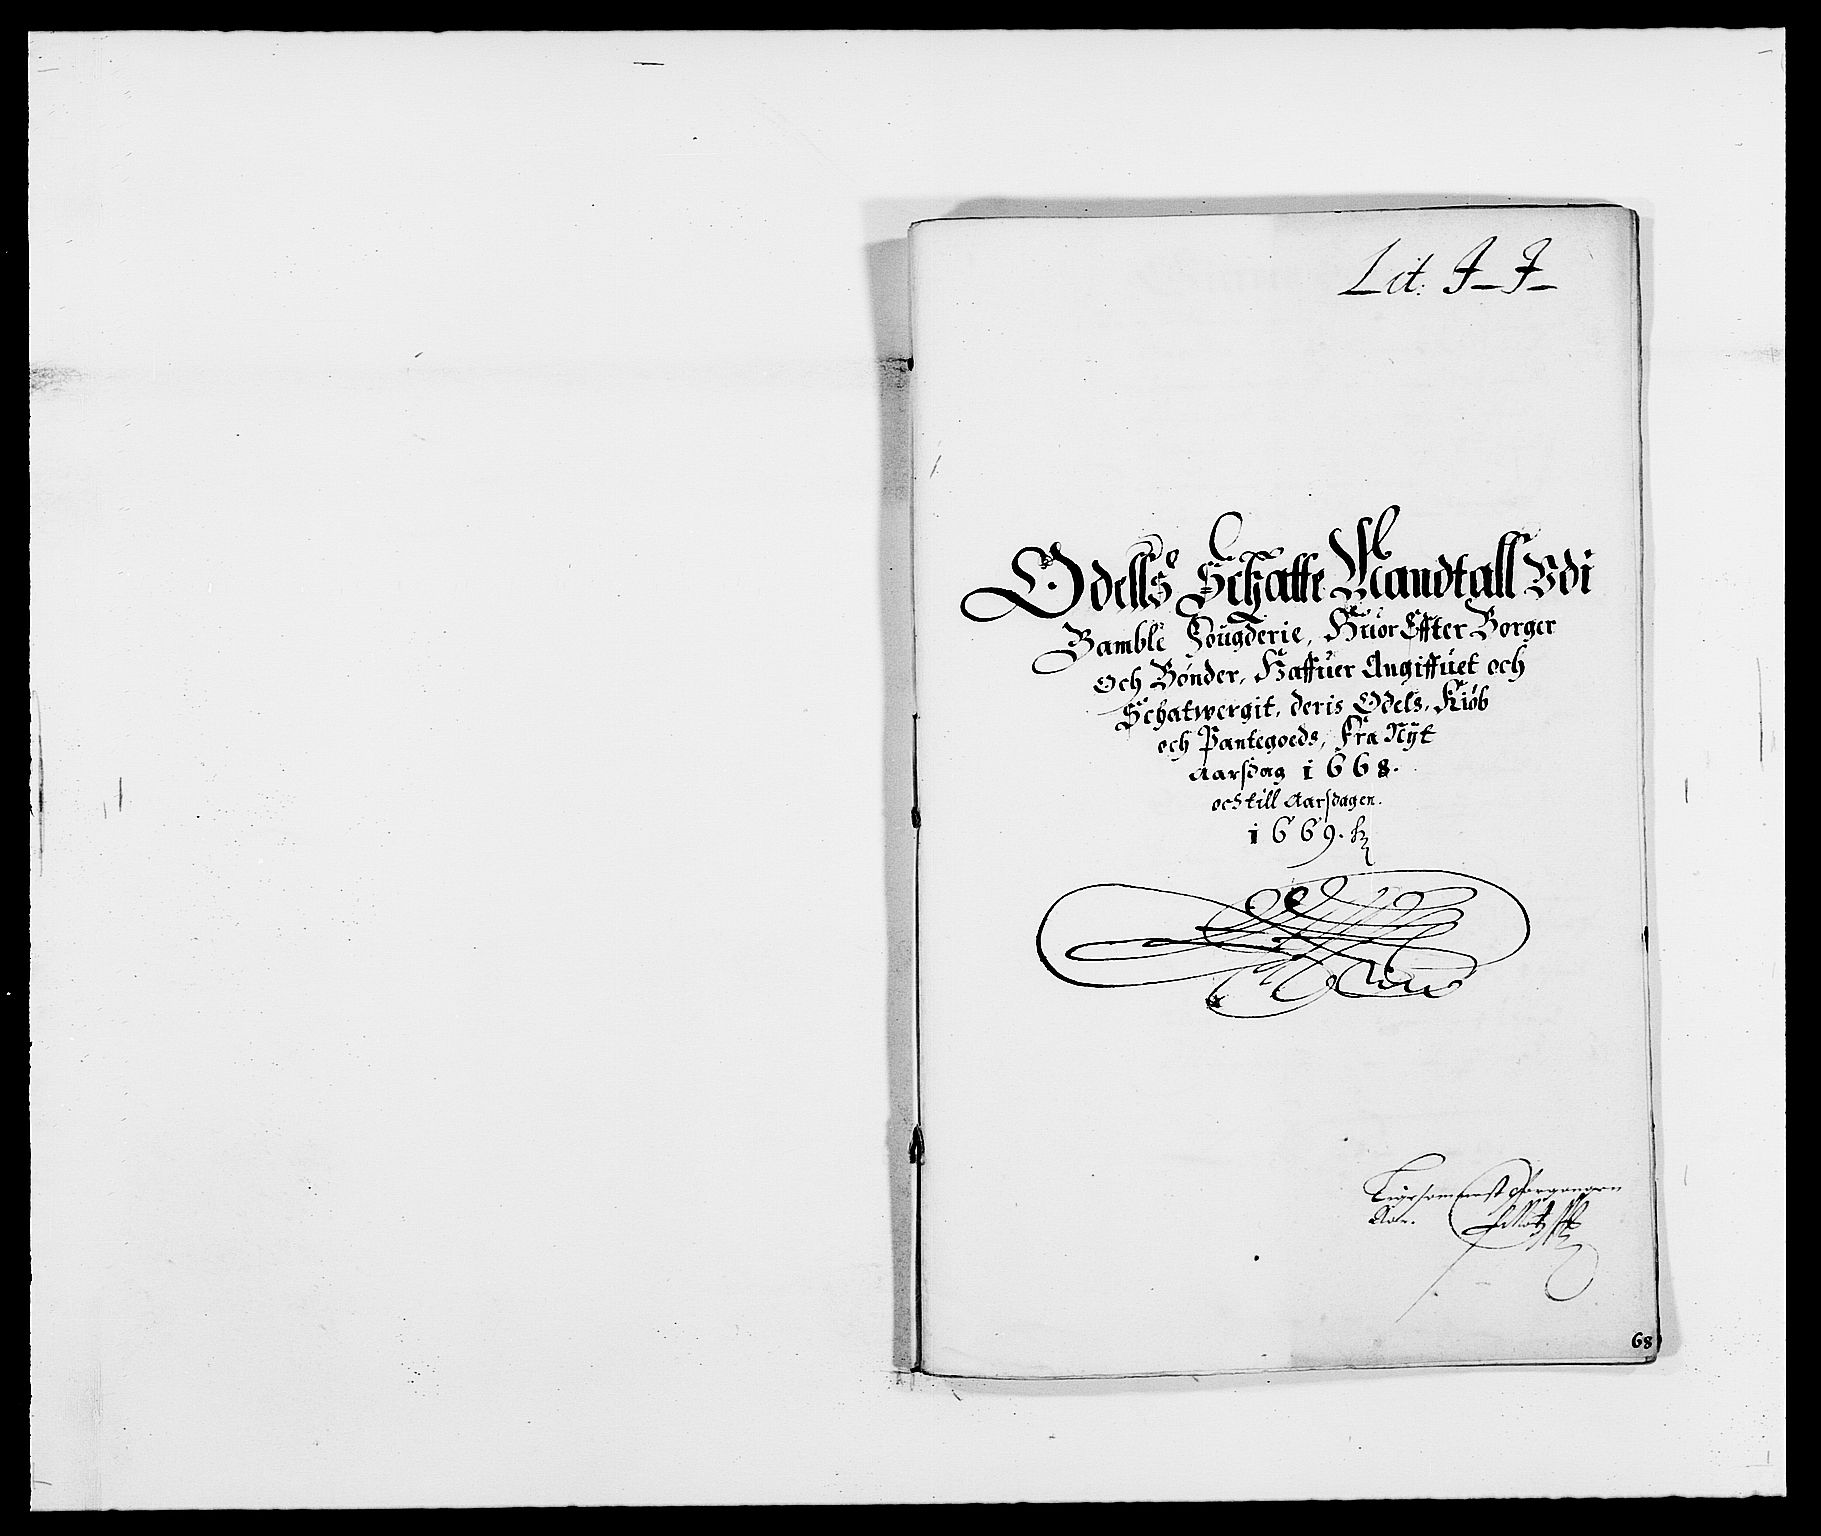 Lit: J-J-
Odells Schatte Mandtall Vdi
Bamble Fougderie, Huor Effter Borger
Och Bønder, Haffuer Angiffuet och
Schatwergit, deris Odels, Kiøb
och Pantegoeds, Fra Nÿt
Aarsdag 1668.
och till Aarsdagen.
1669.
Ligesom nest forgangen
Aar.
68